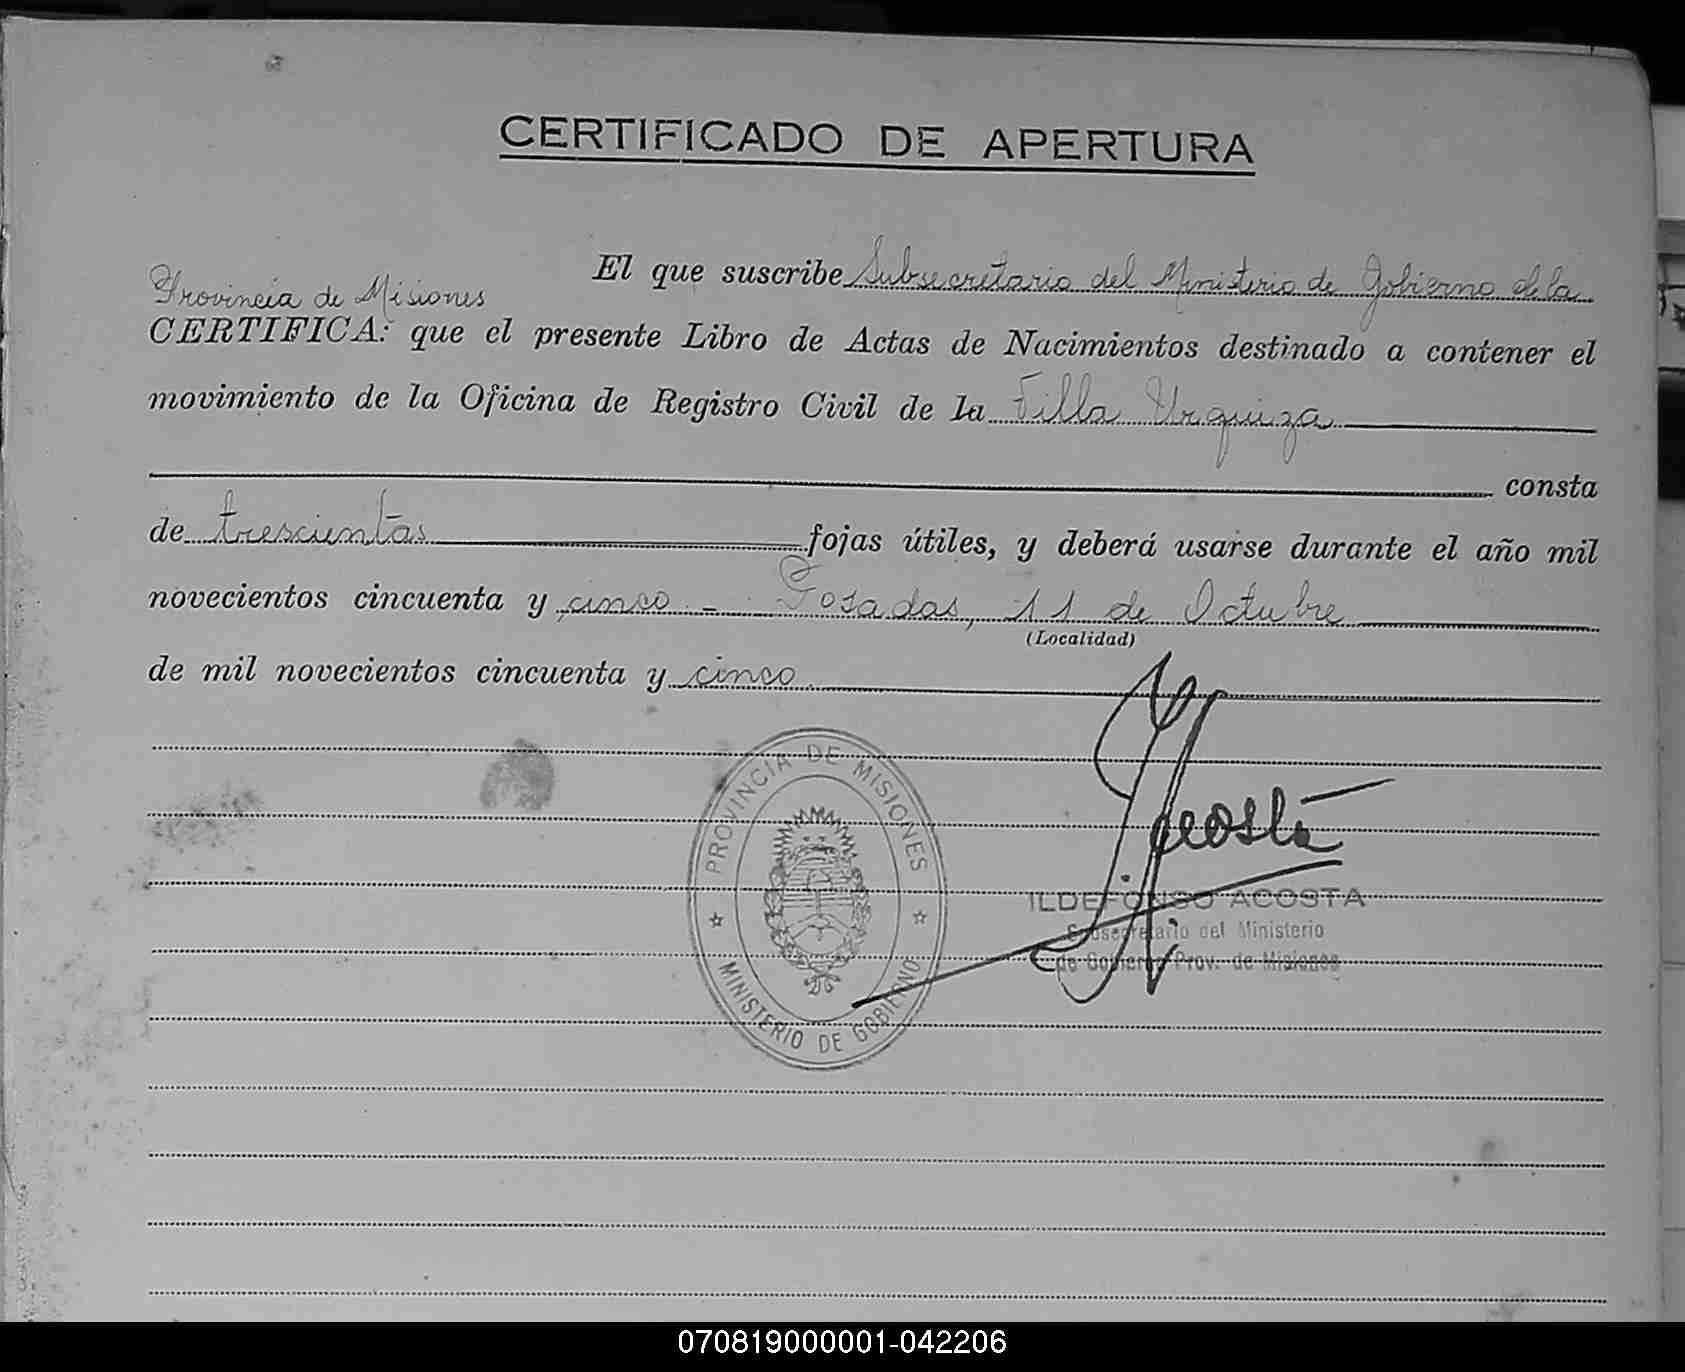 CERTIFICADO DE APERTURA
El que suscribe Subsecretario del Ministerio de Gobierno de la
Provincia de Misiones
CERTIFICA: que el presente Libro de Actas de Nacimientos destinado a contener el
movimiento de la Oficina de Registro Civil de la Villa Urquiza
consta
de trescientas fojas útiles, y deberá usarse durante el año mil
novecientos cincuenta y cinco - Posadas, 11 de Octubre
(Localidad)
de mil novecientos cincuenta y cinco
PROVINCIA DE MISIONES
MINISTERIO DE GOBIERNO
Acosta
ILDEFONSO ACOSTA
Subsecretario del Ministerio
de Gobierno Prov. de Misiones
070819000001-042206